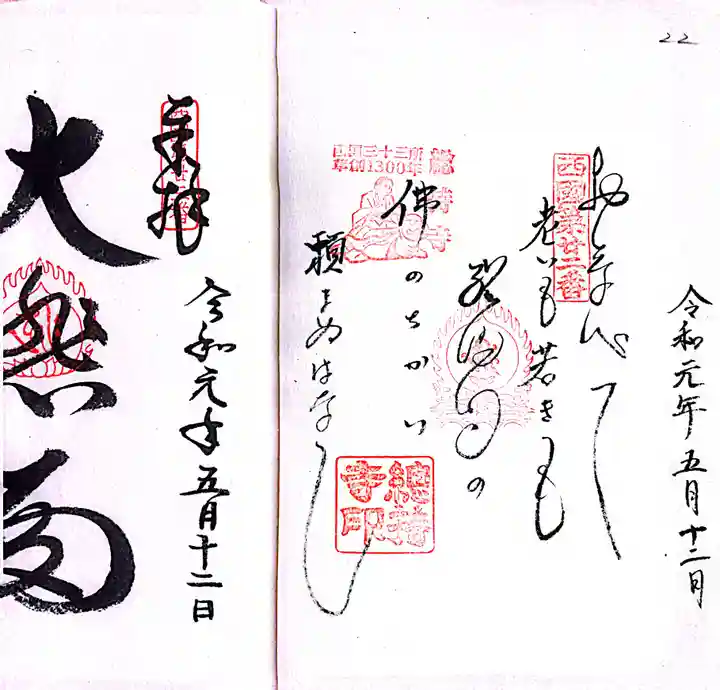 22
令和元年五月十二月
西國第廿二番
老いも若きも
の
佛のちかい
頼まぬはなし
西国三十三所
草創1300年
總持寺
總持
寺印
奉拝
令和元年五月十二日
大悲